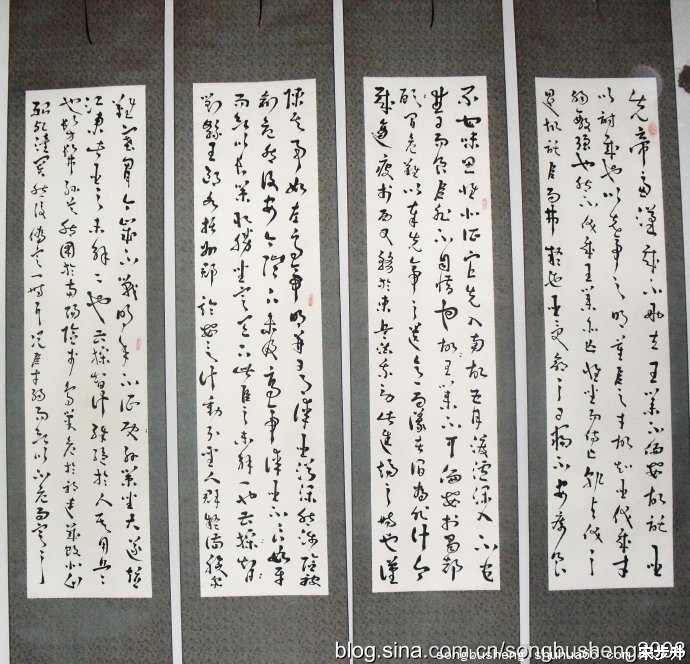 先帝慮漢賊不兩立王業不偏安故託臣
以討賊也以先帝之明量臣之才故知臣伐賊才
弱敵强也然不伐賊王業亦亡惟坐而待亡孰與伐之
是故託臣而弗疑也臣受命之日寢不安席食
不甘味思惟北征宜先入南故五月渡瀘深入不毛
并日而食臣非不自惜也顧王業不可偏安於蜀都
故冒危難以奉先帝之遺意而議者謂為非計今
賊適疲於西又務於東兵法乘勞此進趨之時也謹
陳其事如左高帝明并日月謀臣淵深然涉險被
創危然後安今陛下未及高帝謀臣不如良平
而欲以長策取勝坐定天下此臣之未解一也
劉繇王朗各據州郡論安言計動引聖人群疑滿腹衆
難塞胸今歲不戰明年不征使孫策坐大遂并
江東此臣之未解二也曹操智計殊絕於人其用兵
也髣髴孫吳然困於南陽險於烏巢危於祁連
殆死潼關然後僞定一時耳況臣才弱而欲以不危而定之
blog.sina.com.cn/songbusheng2008